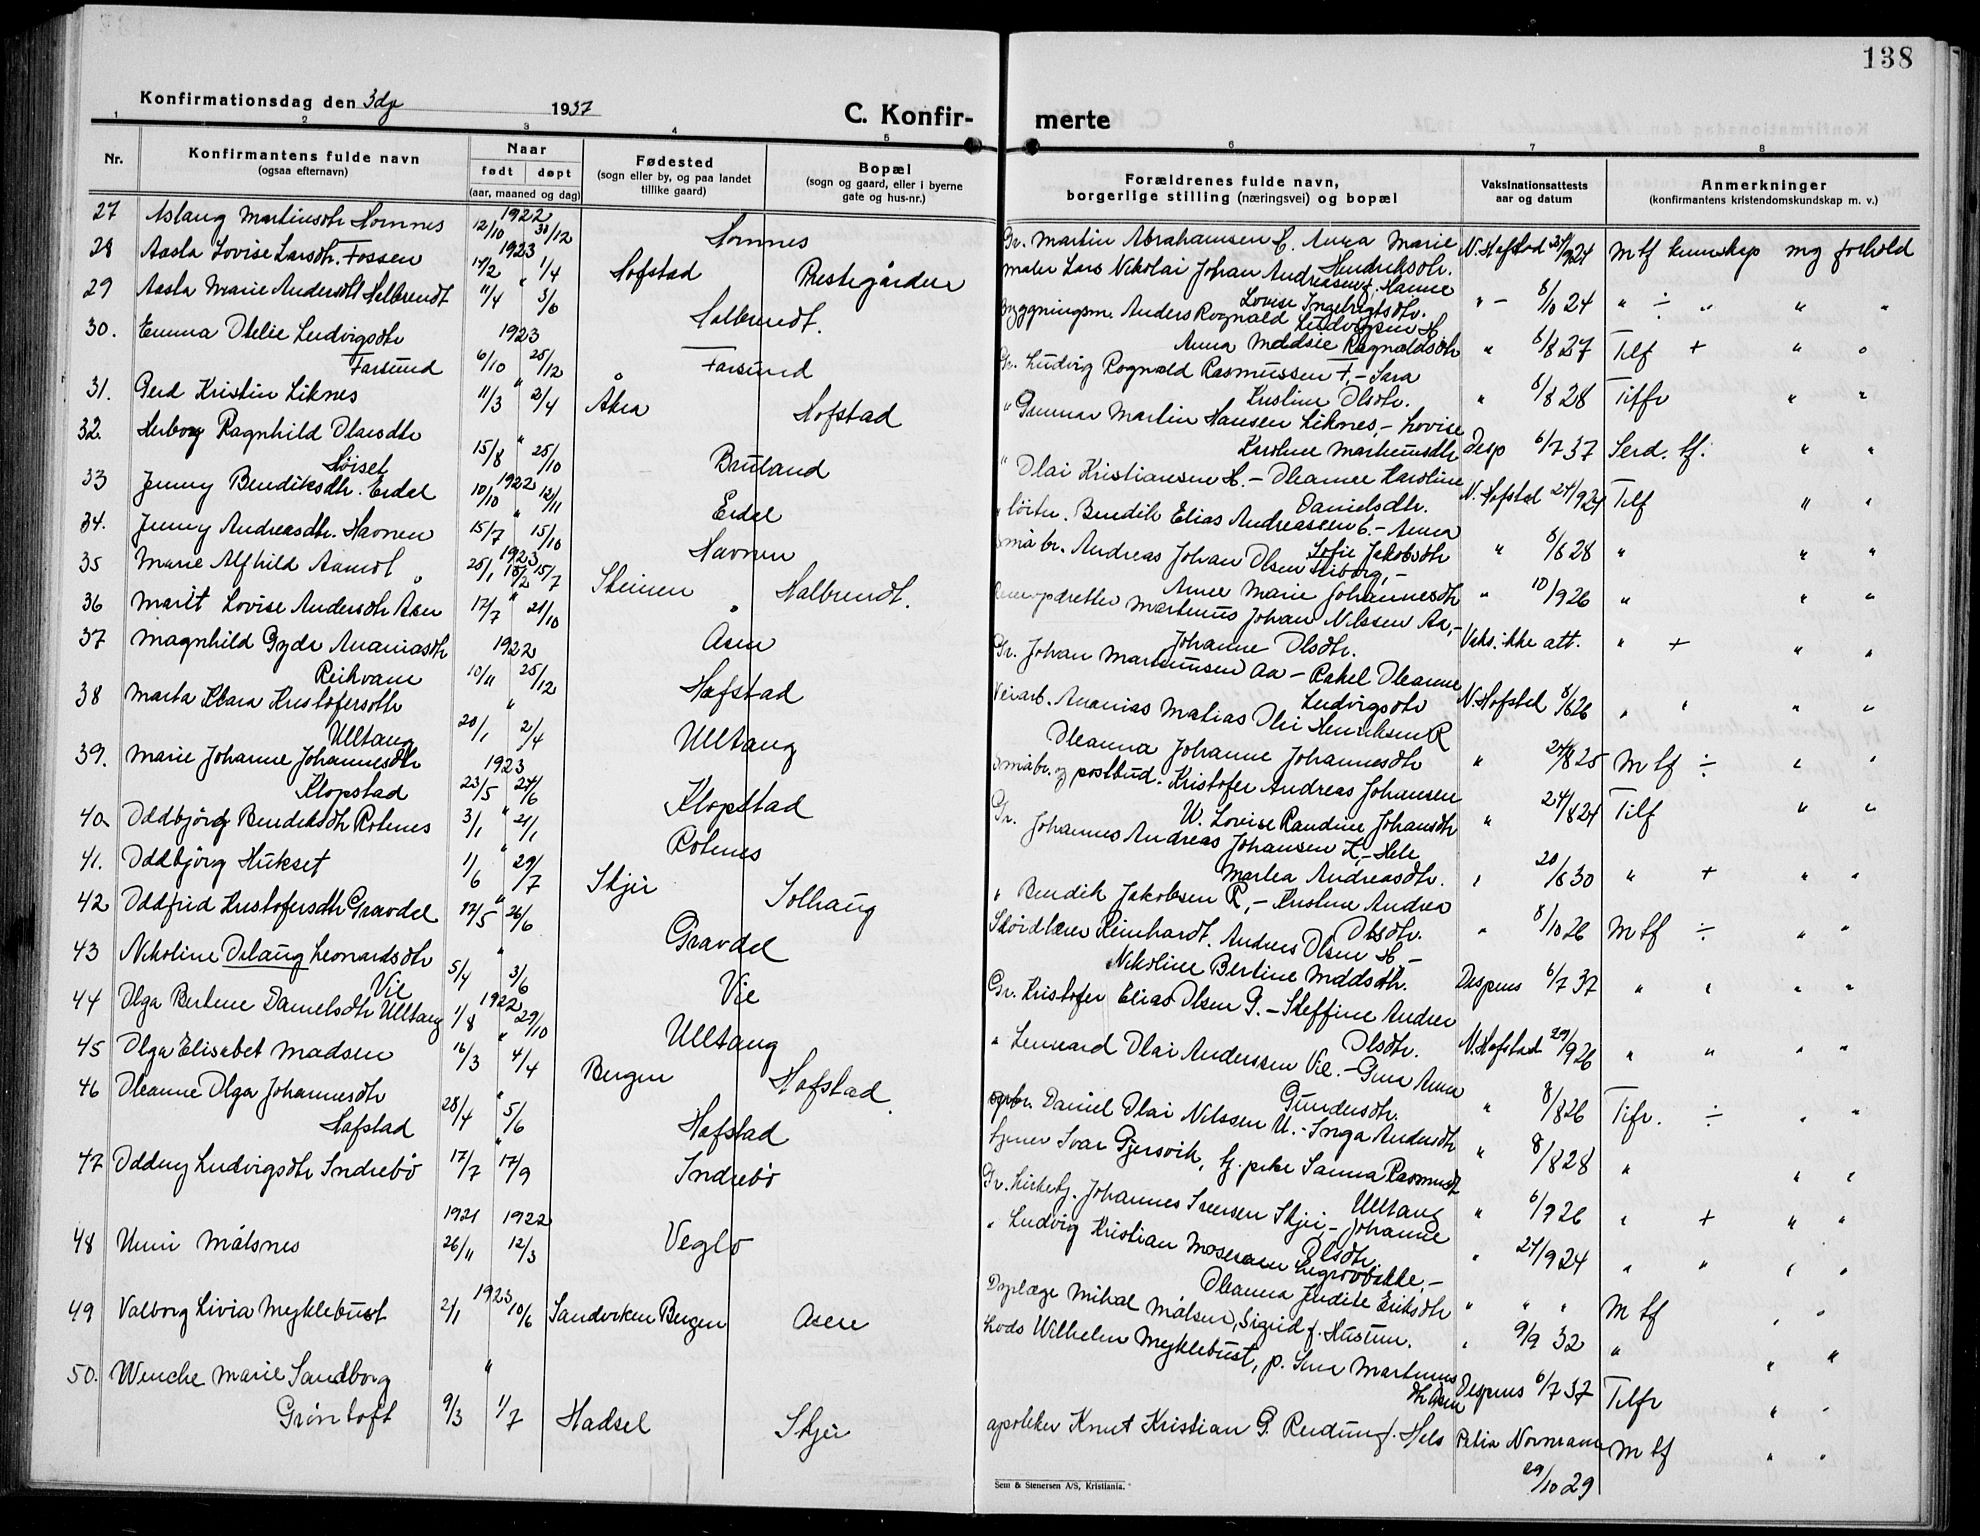 138
Konfirmationsdag den 3dje 1937
C. Konfir-
merte
1 2 3 4 5 6 7 8
Nr.
Konfirmantens fulde navn
(ogsaa efternavn)
Naar
født døpt
(aar, maaned og dag)
Fødested
(sogn eller by, og paa landet
tillike gaard)
Bopæl
(sogn og gaard, eller i byerne
gate og hus-nr.)
Forældrenes fulde navn,
borgerlige stilling (næringsvei) og bopæl
Vaksinationsattests
aar og datum
Anmerkninger
(konfirmantens kristendomskundskap m. v.)
27 Aslaug Martinsdtr Hornnes 1922 12/10 30/12 Hornnes
28 Aasta Lovise Larsdtr. Fossen 1923 14/2 1/4 Hofstad Prestegården
29 Aasta Marie Andersdtr Halbrendt 11/4 " 3/6 Halbrendt.
30. Emma Otelie Ludvigsdtr 1923
Farsund 6/10 25/12 Farsund
31. Gerd Kristin Liknes 11/3 " 2/4 Akra Hofstad
32. Herborg Ragnhild Olaisdtr
Høiset 15/8 " 25/10 Bruland
33 Jenny Bendiksdtr. Erdal 1922 10/10 12/11 Erdal
34. Jenny Andreasdtr. Havnen 15/7 " 15/10 Havnen
35 Marie Alfhild Aamot 1923 25/1 15/7 Steinen Halbrendt.
36 Marit Lovise Andersdtr Asen 17/7 " 21/10 Åsen
37 Magnhild Gyda Ananiasdtr 1922
Reikvam 10/11 25/12 Hafstad
38 Marta Klara Kristofersdtr
Ulltang 20/1 " 2/4 Ulltang
39. Marie Johanne Johannesdtr 1923
Klopstad 23/5 24/6 Klopstad
40. Oddbjörg Bendiksdtr Rotenes 3/1 " 21/1 Rotenes
41. Oddbjörg Hukset 1/6 " 29/7 Skjer Solhaug
42 Oddfrid Kristofersdtr Gravdal 12/5 " 26/6 Gravdal
43 Nikoline Oslaug Leonardsdtr
Vie 5/4 " 3/6 Vie
44 Olga Bertine Danielsdtr Ulltang 1922 1/8 29/10 Ulltang
45 Olga Elisabet Madsen 16/3 " 4/4 Bergen Hafstad
46 Oleanne Olga Johannesdtr
Hafstad 28/4 " 5/6 Hafstad
47 Oddny Ludvigsdtr Indrebö 17/7 " 17/9 Indrebö
48 Unni Målsnes 1921 26/11 1922 12/3 Veglo
49 Valborg Livia Myklebust 2/1 1923 10/6 Sandviken Bergen Åsen
50. Wenche Marie Sandborg
Gröntoft 9/3 " 1/7 Hadsel Skjer
Gr. Martin Abrahamsen H. Anna Marie
Hendriksdtr. N. Hafstad 27/9 24 Mtf kunnskap mg forhold
Maler Lars Nikolai Johan Andreasen f. Hanne
Lovise Ingebrigtsdtr. " – 8/10 24 " ÷ " " "
Byggningsm. Anders Rognald Ludvigsen H
Anna Mdsdtr Ragnaldsdtr " 8/8 27 Tilf + " "
Gr. Ludvig Rognald Rasmussen F. – Sara
Kristine Olsdtr. " 8/8 28 Tilfr " "
" Gunnar Martin Hansen Liknes, – Lovise
Karoline Martinusdtr Desp 6/7 37 Serd. tf. " "
" Olai Kristiansen H. – Oleanne Karoline
Danielsdtr. N. Hafstad 24/9 24 Tilf " "
Bendik Elias Andreassen E. – Anna
Sofie Jakobsdtr " 8/8 28 " " "
Småbr. Andreas Johan Olsen –
Anne Marie Johannesdtr " 10/9 26 " " "
Martinus Johan Nilssen Aa, –
Johanne Olsdtr. Vaks. ikke att. " + " "
Gr. Johan Martinussen Aa – Rakel Oleanne
Ludvigsdtr N. Hofstad 8/8 26 " " " "
Veiarb. Ananias Matias Olai Henriksen R
Oleanna Johanne Johannesdtr " 24/8 25 Mtf ÷ " "
Småbr. og postbud. Kristofer Andreas Johansen
U. Lovise Randine Johansdtr " 24/8 24 Tilf " "
Gr. Johannes Andreas Johansen K. –
Martea Andreasdtr. " 20/8 30 " + " "
" Bendik Jakobsen R, – Kristine Andrea
Olsdtr. " 8/10 26 Mtf ÷ " "
Reinhardt. Andreas Olsen H –
Nikoline Bertine Maddsdtr. Despens 6/7 37 " " " "
Gr. Kristofer Elias Olsen G. – Steffine Andrea
Olsdtr. N. Hafstad 29/9 26 " " " "
" Lennard Olai Anderssen Vie. – Gina Anna
Gundersdtr. " 8/8 26 Tifr. ÷ " "
Daniel Olai Nilssen U. – Inga Andersdtr
Ivar Gjersvik, Sanna Rasmusdtr " 8/8 28 " " "
Gr. Kirketj. Johannes Iversen Skjei – Johanne
Olsdtr. Ulltang " 6/7 26 " + " "
" Ludvig Kristian Mosesen
Oleanna Judite Eriksdtr " 27/9 24 " " " "
Dyrlæge Mikal Målsnes, Sigrid f. Husum. " 9/9 32 Mtf " "
Lods Wilhelm Myklebust, p. Martinus
dtr Åsen Despens 6/7 37 Tilfr " "
apoteker Knut Kristian G. Reidun f. Hels Petia Normann Mtf " "
29/10 29
Sem & Stenersen A/S, Kristiania.